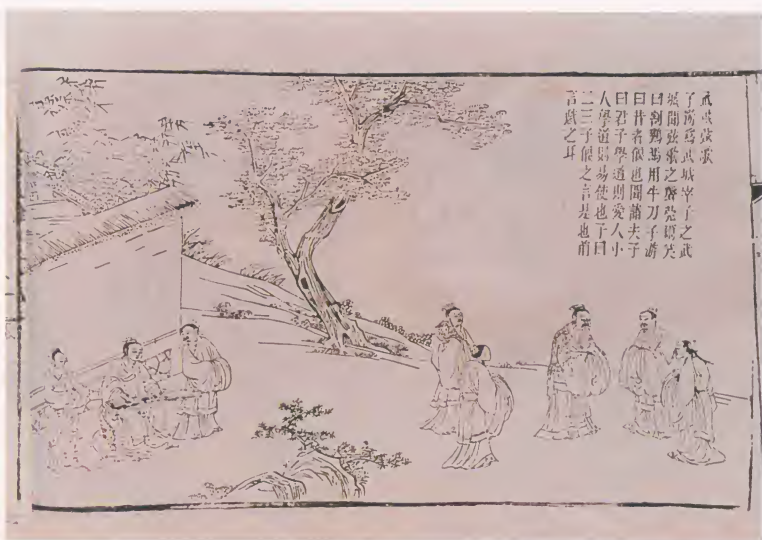 武城弦歌
子游爲武城宰子之武
城聞弦歌之聲莞爾笑
曰割鷄焉用牛刀子游
曰昔者偃也聞諸夫子
曰君子學道則愛人小
人學道則易使也子曰
二三子偃之言是也前
言戲之耳